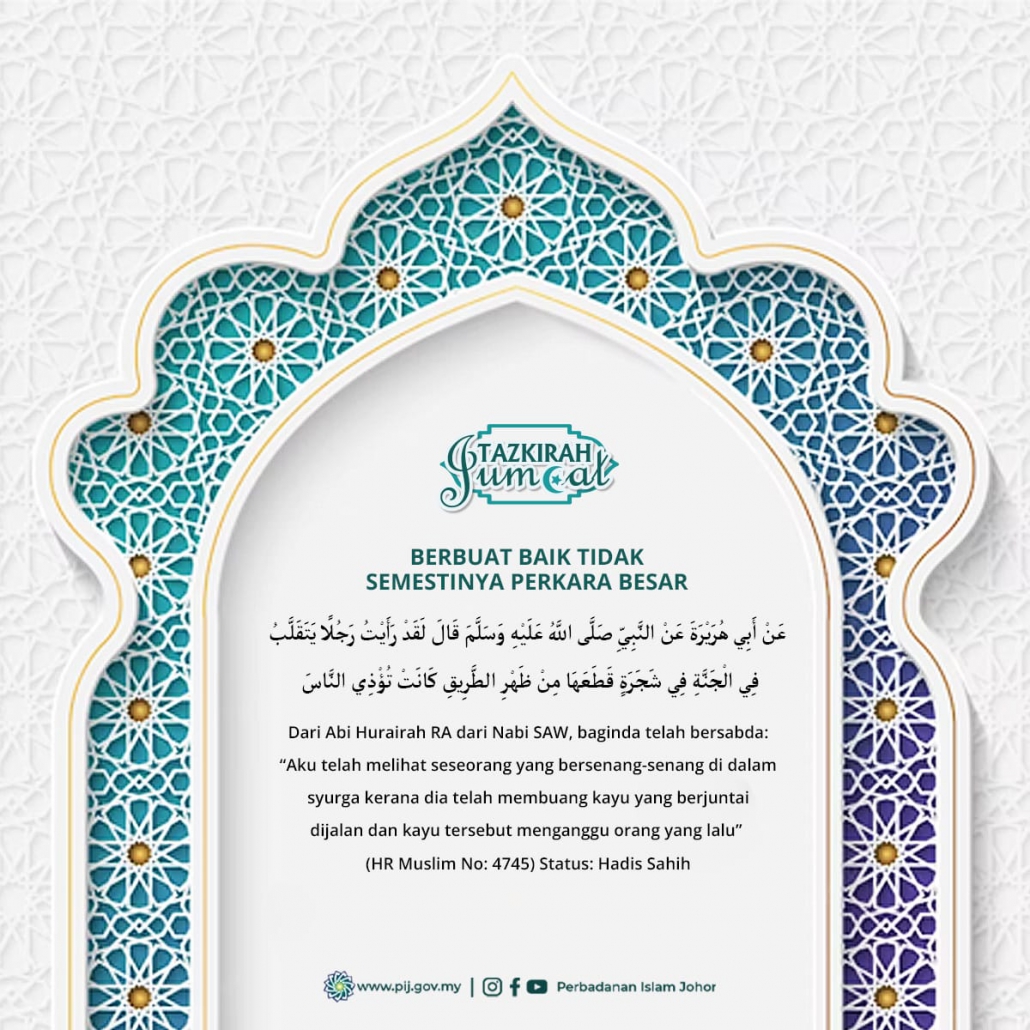 TAZKIRAH
Jumaat
BERBUAT BAIK TIDAK
SEMESTINYA PERKARA BESAR
عَنْ أَبِي هُرَيْرَةَ عَنْ النَّبِيِّ صَلَّى اللَّهُ عَلَيْهِ وَسَلَّمَ قَالَ لَقَدْ رَأَيْتُ رَجُلًا يَتَقَلَّبُ
فِي الْجَنَّةِ فِي شَجَرَةٍ قَطَعَهَا مِنْ ظَهْرِ الطَّرِيقِ كَانَتْ تُؤْذِي النَّاسَ
Dari Abi Hurairah RA dari Nabi SAW, baginda telah bersabda:
“Aku telah melihat seseorang yang bersenang-senang di dalam
syurga kerana dia telah membuang kayu yang berjuntai
dijalan dan kayu tersebut menganggu orang yang lalu”
(HR Muslim No: 4745) Status: Hadis Sahih
www.pij.gov.my | Perbadanan Islam Johor